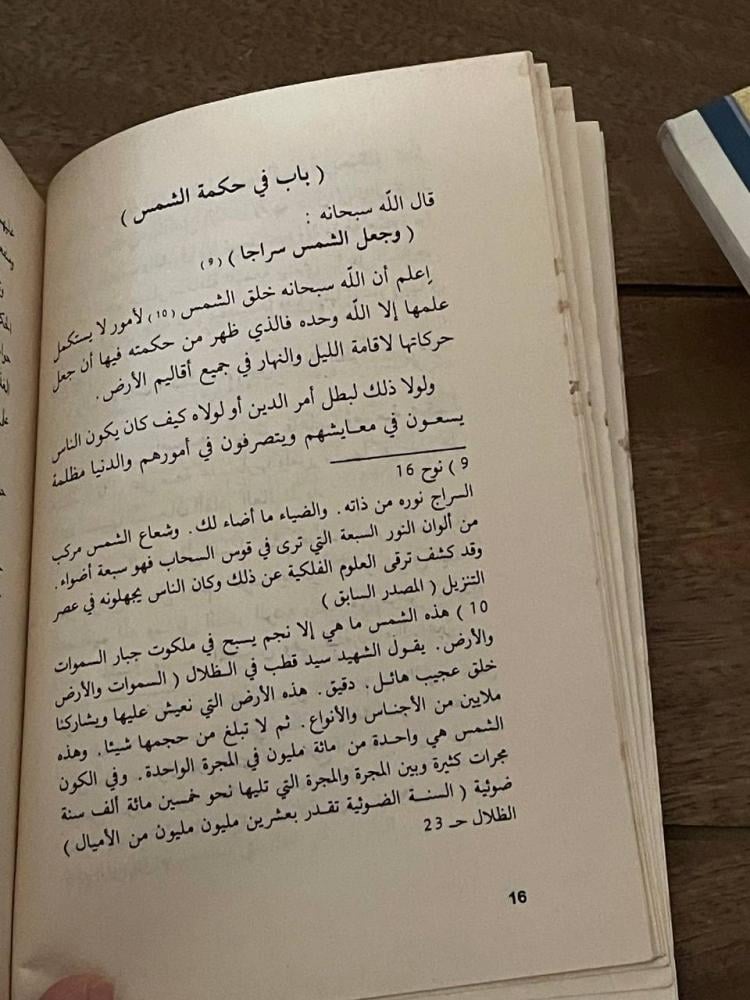 ( باب في حكمة الشمس )
قال اللّه سبحانه :
( وجعل الشمس سراجا ) (٩)
إعلم أن اللّه سبحانه خلق الشمس (١٥) لأمور لا يستكمل
علمها إلا اللّه وحده فالذي ظهر من حكمته فيها أن جعل
حركاتها لاقامة الليل والنهار في جميع أقاليم الأرض .
ولولا ذلك لبطل أمر الدين أو لولاه كيف كان يكون الناس
يسعون في معايشهم ويتصرفون في أمورهم والدنيا مظلمة
9 ) نوح 16
السراج نوره من ذاته . والضياء ما أضاء لك . وشعاع الشمس مركب
من ألوان النور السبعة التي ترى في قوس السحاب فهو سبعة أضواء .
وقد كشف ترقى العلوم الفلكية عن ذلك وكان الناس يجهلونه في عصر
التنزيل ( المصدر السابق )
10 ) هذه الشمس ما هي إلا نجم يسبح في ملكوت جبار السموات
والأرض . يقول الشهيد سيد قطب في الظلال ( السموات والأرض
خلق عجيب هائل . دقيق . هذه الأرض التي نعيش عليها ويشاركنا
ملايين من الأجناس والأنواع . ثم لا تبلغ من حجمها شيئا . وهذه
الشمس هي واحدة من مائة مليون في المجرة الواحدة . وفي الكون
مجرات كثيرة وبين المجرة والمجرة التي تليها نحو خمسين مائة ألف سنة
ضوئية ( السنة الضوئية تقدر بعشرين مليون مليون من الأميال )
الظلال حـ 23
16